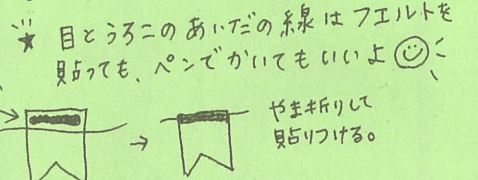 ★ 目とうろこのあいだの線はフエルトを
貼っても、ペンでかいてもいいよ
やま折りして
貼りつける。